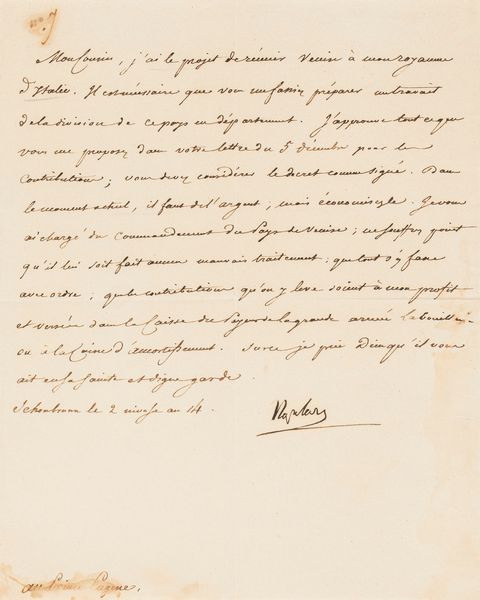 no. 7
Mon Cousin, j'ai le projet de réunir Venise à mon royaume
d'Italie. Il est nécessaire que vous me fassiez préparer un travail
de la division de ce pays en département. J'approuve tout ce que
vous me proposez dans votre lettre du 5 décembre pour les
Contributions; vous devez considérer le décret comme signé. Dans
le moment actuel, il faut de l'argent; mais économisez le. Je vous
ai chargé du Commandement du Pays de Venise; ne souffrez point
qu'il lui soit fait aucun mauvais traitement; que tout s'y fasse
avec ordre; que les contributions qu'on y leve soient à mon profit
et versées dans la Caisse du Payeur de la grande armée
ou à la Caisse d'amortissement. Sur ce je prie Dieu qu'il vous
ait en sa sainte et digne garde.
Schonbrunn le 2 nivose an 14.
Napoleon
au Prince Eugene.